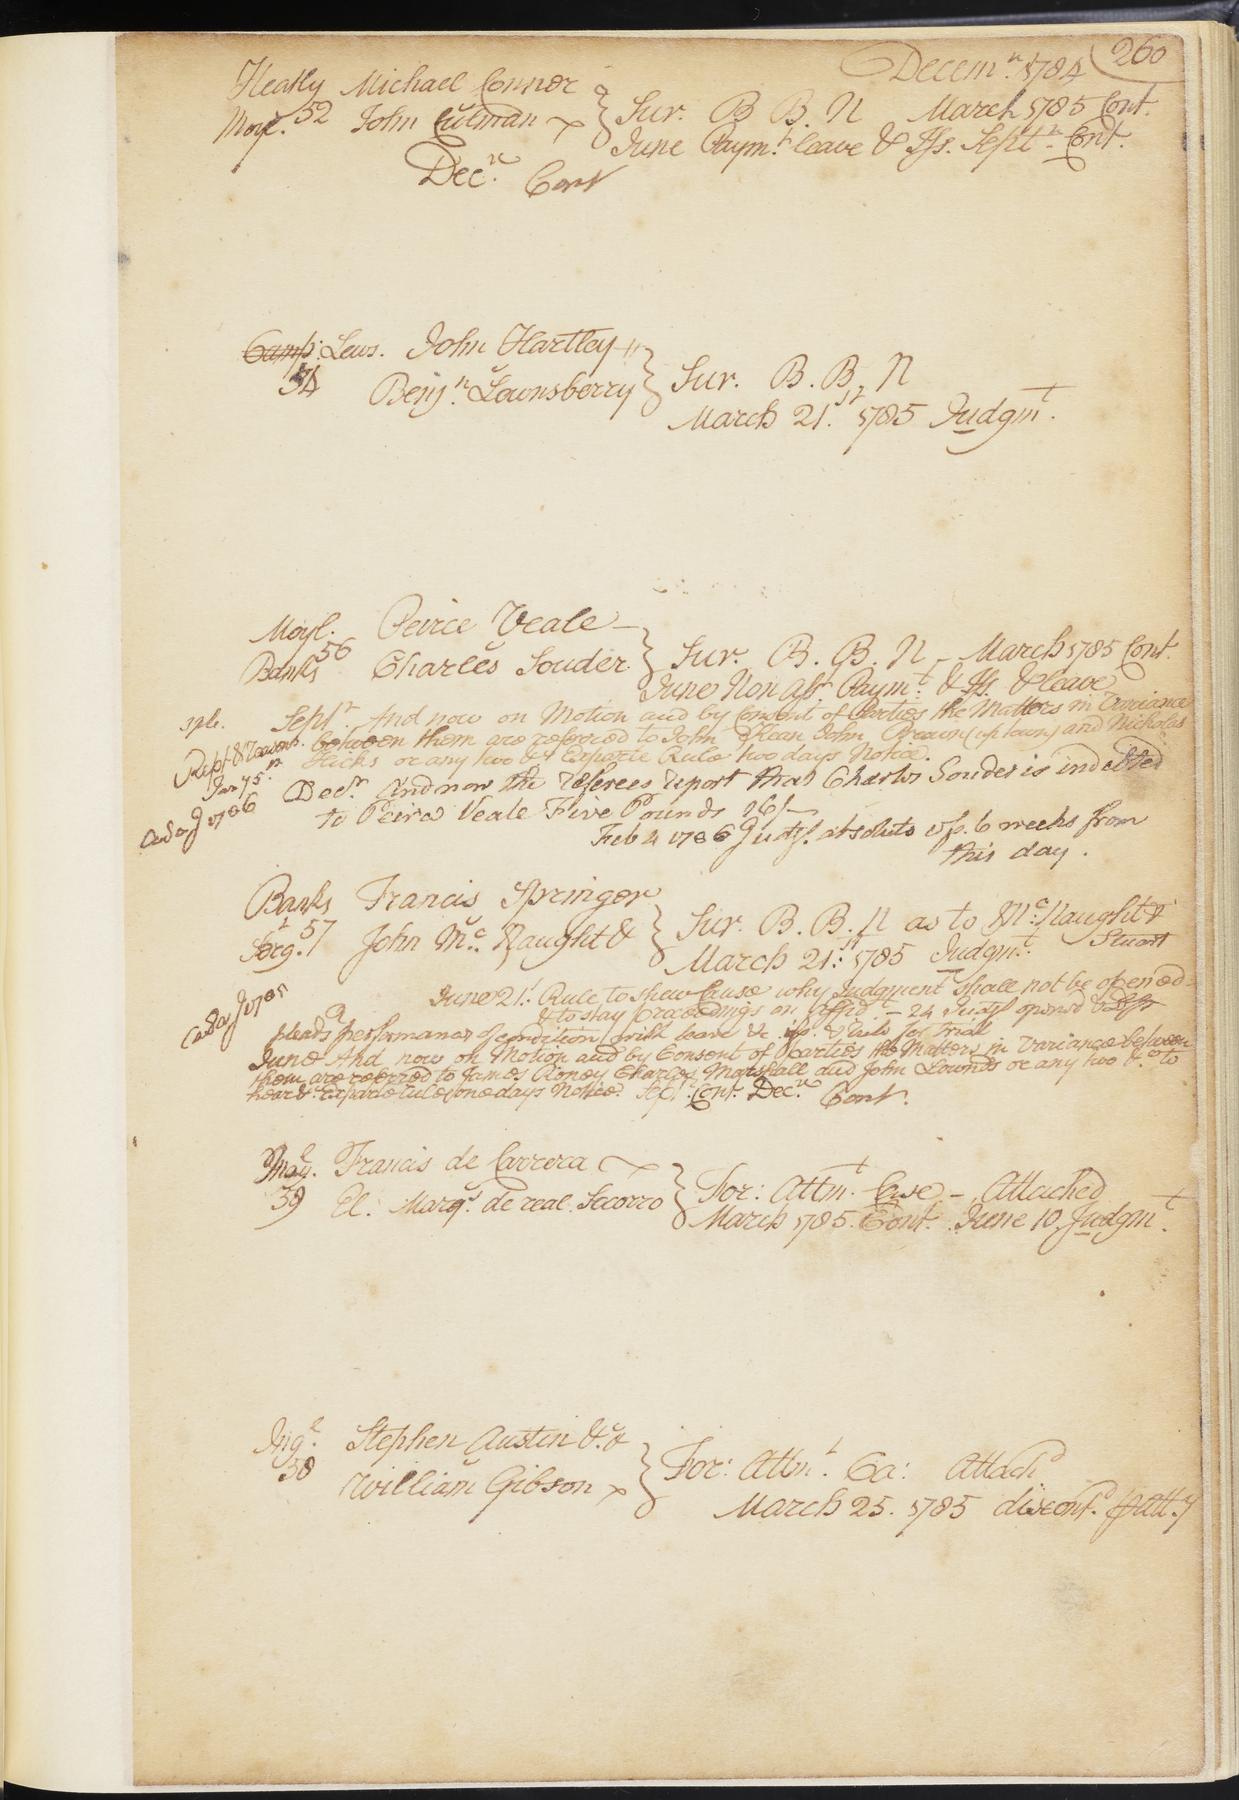 Decem.r 1784 260
Heatly Michael Connor
Moyl. 52 v John Culman } Sur. B B. N March 1785 Cont.
June Paym.t leave & Iss. Sept.r Cont.
Dec.r Cont
Camp: Lews. John Hartley
54 v Benj.n Lounsberry } Sur. B. B. N
March 21.st 1785 Judgm.t
Moyl. Peirce Veale
56 v
Banks Charles Souder } Sur. B. B. N March 1785 Cont.
June Non Ass.t Paym.t & Iss. & leave
Sept.r And now on Motion and by Consent of Parties the Matters in Variance
between them are referred to John Kean John Brown (up town) and Nicholas
Hicks or any two &c Exparte Rule two days Notice.
Dec.r And now the Referees report that Charles Souder is indebted
to Peirce Veale Five Pounds 16/
Feb 4 1786 Judg.t absolute 6 weeks from
this day.
Banks Francis Springer
Serg.t 57 v John M.c Naught & } Sur. B. B. N as to M.c Naught &
Stuart
March 21.st 1785 Judgm.t
June 21.t Rule to shew Cause why Judgment shall not be opened
& to stay proceedings on Affid.t – 24 Judg.t opened & Def.t
pleads performance of condition with leave &c & rule for Trial
June And now on Motion and by Consent of Parties the Matters in Variance between
them are referred to James Roney Charles Marshall and John Lownds or any two &c to
hear &c Exparte rule one days Notice. Sept.r Cont. Dec.r Cont.
Francis de Carrera
39 v El. Marq.s de real Socorro } For: Attm.t Case – Attached
March 1785. Cont. June 10. Judgm.t
Ing.l Stephen Austin & Co
38 v William Gibson } For: Attm.t Ca: Attach.d
March 25. 1785 discont.d P Att.y